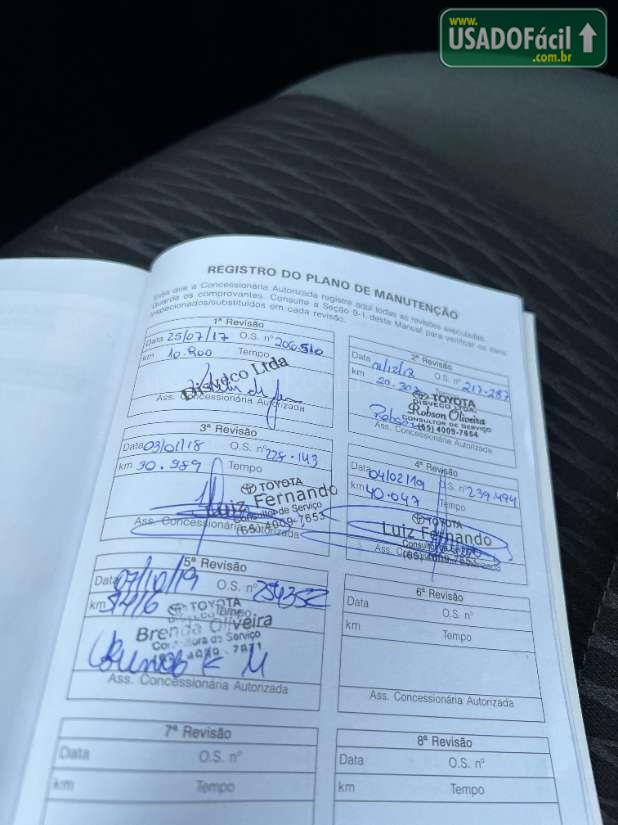 www.
USADOFácil
.com.br
REGISTRO DO PLANO DE MANUTENÇÃO
Exija que a Concessionária Autorizada registre aqui todas as revisões executadas.
Guarde os comprovantes. Consulte a Seção 9-1 deste Manual para verificar os itens
inspecionados/substituídos em cada revisão.
1ª Revisão
Data 25/07/17 O.S. nº 206.510
km 10.800 Tempo
Disveco Ltda
Ass. Concessionária Autorizada
2ª Revisão
Data O.S. nº 217-287
km Tempo
TOYOTA
DISVECO LTDA
Robson Oliveira
CONSULTOR DE SERVIÇO
(65) 4009-7654
Ass. Concessionária Autorizada
3ª Revisão
Data 03/01/18 O.S. nº 228-143
km 30.989 Tempo
TOYOTA
Luiz Fernando
Consultor de Serviço
(65) 4009-7653
Ass. Concessionária Autorizada
4ª Revisão
Data 04/02/19 O.S. nº 239.494
km 40.047 Tempo
TOYOTA
Luiz Fernando
Consultor de Serviço
(65) 4009-7653
Ass. Concessionária Autorizada
5ª Revisão
Data 07/10/19 O.S. nº 254352
km Tempo
TOYOTA
Brenda Oliveira
de Serviço
Ass. Concessionária Autorizada
6ª Revisão
Data O.S. nº
km Tempo
Ass. Concessionária Autorizada
7ª Revisão
Data O.S. nº
km Tempo
8ª Revisão
Data O.S. nº
km Tempo